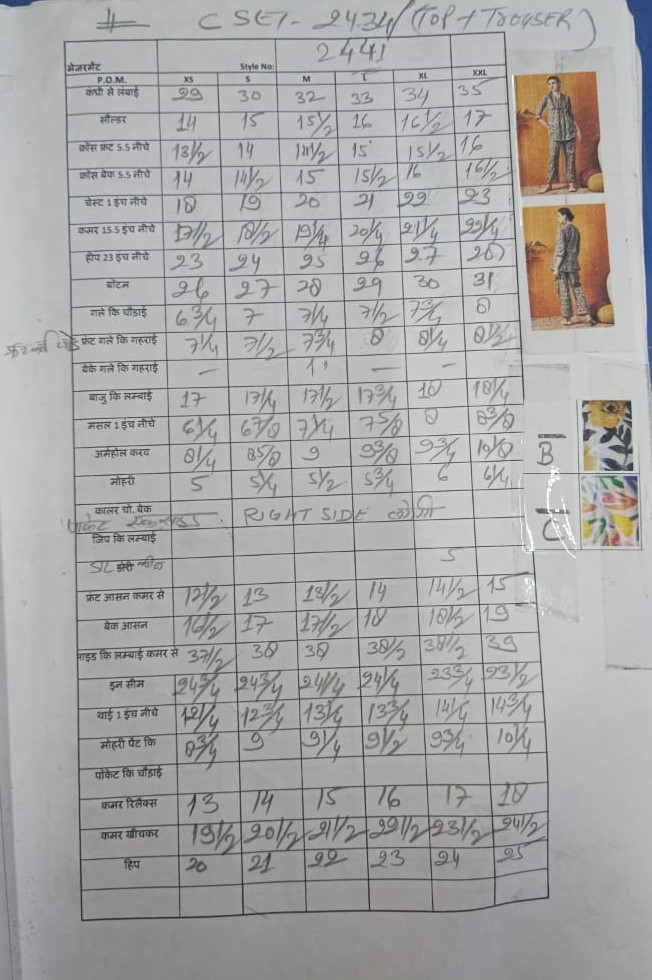 # C SET- 2434/ (TOP + TROUSER)
2441
मेजरमेंट Style No:
P.O.M. XS S M L XL XXL
कंधी से लंबाई 29 30 32 33 34 35
सोल्डर 14 15 15 1/2 16 16 1/2 17
क्रॉस फ्रंट 5.5 नीचे 13 1/2 14 14 1/2 15 15 1/2 16
क्रॉस बेक 5.5 नीचे 14 14 1/2 15 15 1/2 16 16 1/2
चेस्ट 1 इंच नीचे 18 19 20 21 22 23
कमर 15.5 इंच नीचे 17 1/2 18 1/2 19 1/4 20 1/4 21 1/4 22 1/4
हीप 23 इंच नीचे 23 24 25 26 27 28
बोटम 26 27 28 29 30 31
गले कि चौड़ाई 6 3/4 7 7 1/4 7 1/2 7 3/4 8
फ्रंट गले कि गहराई 7 1/4 7 1/2 7 3/4 8 8 1/4 8 1/2
बेके गले कि गहराई — 1" — —
बाजु कि लम्बाई 17 17 1/4 17 1/2 17 3/4 18 18 1/4
मसल 1 इंच नीचे 6 1/4 6 7/8 7 1/4 7 5/8 8 8 3/8
अर्महोल करव 8 1/4 8 5/8 9 9 3/8 9 3/4 10 1/8
मोहरी 5 5 1/4 5 1/2 5 3/4 6 6 1/4
कालर चो. बेक
पाकेट RIGHT SIDE लगेगी
जिप कि लम्बाई
डोरी 5
फ्रंट आसन कमर से 12 1/2 13 13 1/2 14 14 1/2 15
बेक आसन 16 1/2 17 17 1/2 18 18 1/2 19
साइड कि लम्बाई कमर से 37 1/2 38 38 38 1/2 38 1/2 39
इन सीम 24 3/4 24 3/4 24 1/4 24 1/4 23 3/4 23 1/2
थाई 1 इंच नीचे 12 1/4 12 3/4 13 1/4 13 3/4 14 1/4 14 3/4
मोहरी पेंट कि 8 3/4 9 9 1/4 9 1/2 9 3/4 10 1/4
पोकेट कि चौड़ाई
कमर रिलैक्स 13 14 15 16 17 18
कमर खीचकर 19 1/2 20 1/2 21 1/2 22 1/2 23 1/2 24 1/2
हिप 20 21 22 23 24 25
B
C